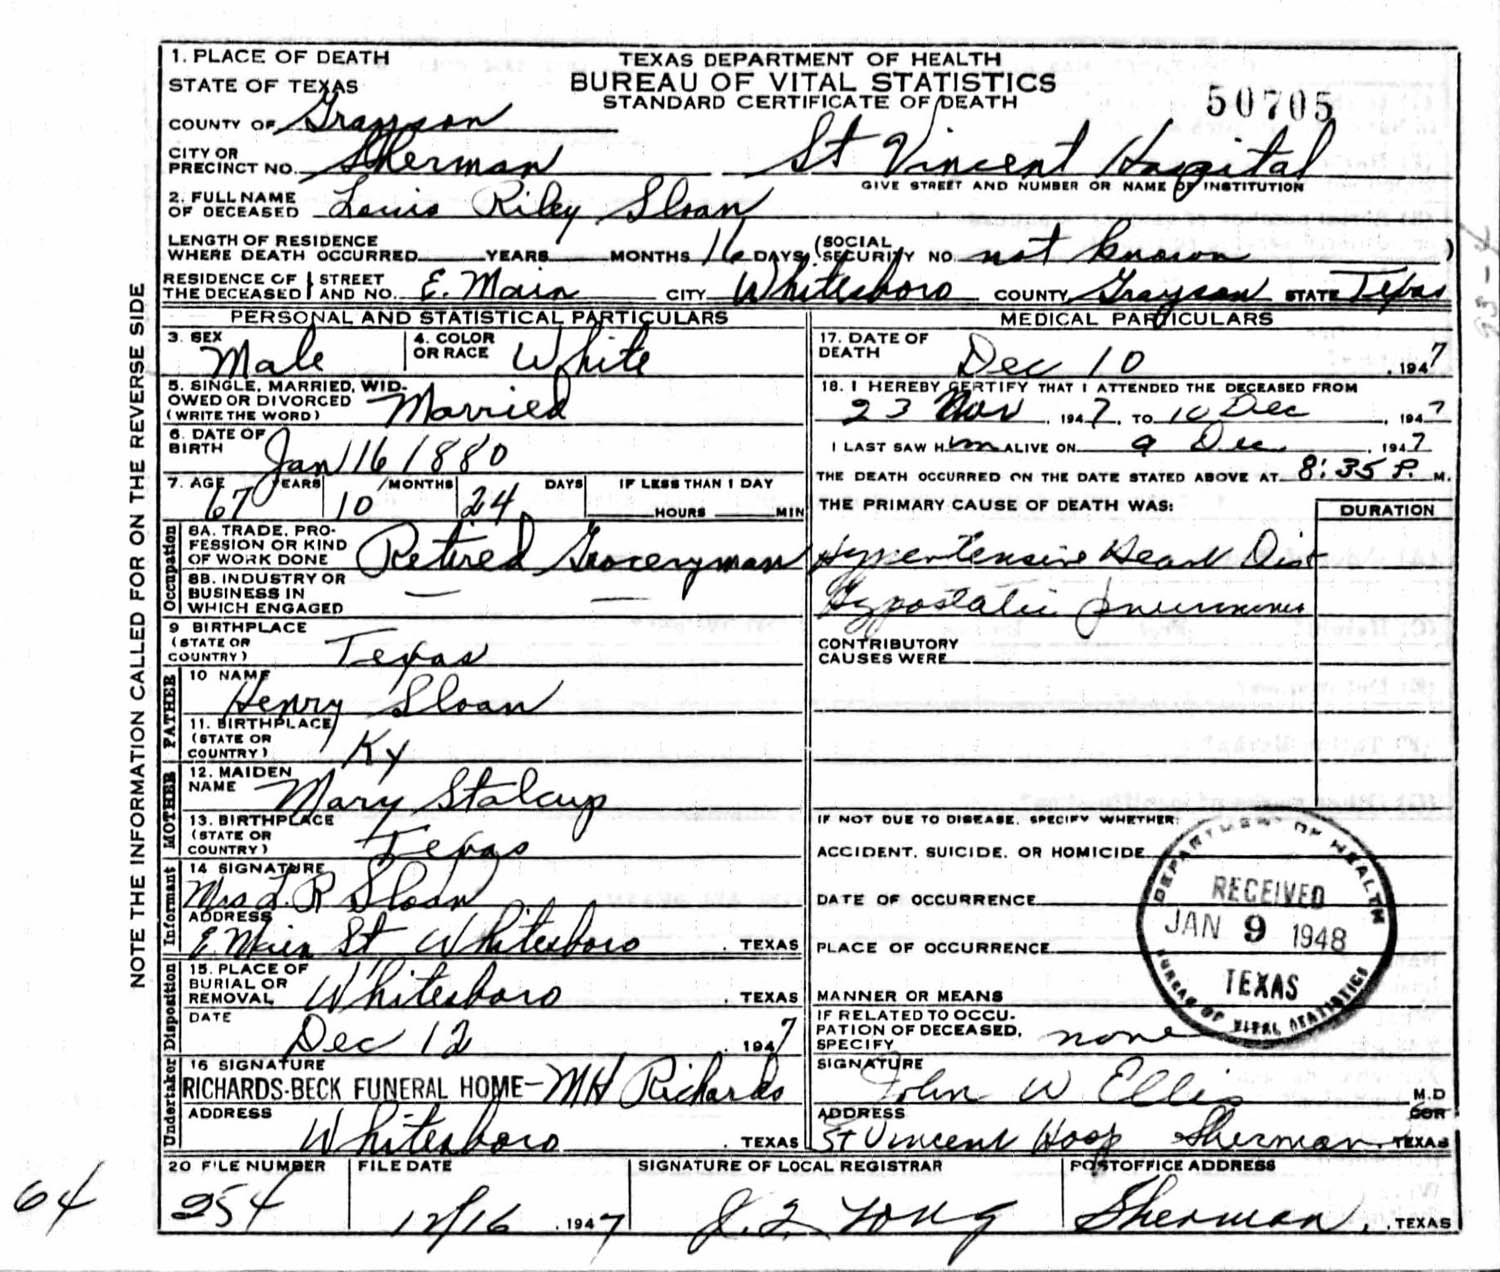 1. PLACE OF DEATH
STATE OF TEXAS
TEXAS DEPARTMENT OF HEALTH
BUREAU OF VITAL STATISTICS
STANDARD CERTIFICATE OF DEATH
50705
COUNTY OF Grayson
CITY OR PRECINCT NO. Sherman St Vincent Hospital
GIVE STREET AND NUMBER OR NAME OF INSTITUTION
2. FULL NAME OF DECEASED Louis Riley Sloan
LENGTH OF RESIDENCE WHERE DEATH OCCURRED YEARS MONTHS 16 DAYS (SOCIAL SECURITY NO. not known )
RESIDENCE OF THE DECEASED STREET AND NO. E. Main CITY Whitesboro COUNTY Grayson STATE Texas
PERSONAL AND STATISTICAL PARTICULARS
3. SEX Male
4. COLOR OR RACE White
5. SINGLE, MARRIED, WIDOWED OR DIVORCED (WRITE THE WORD) Married
6. DATE OF BIRTH Jan 16 1880
7. AGE 67 YEARS 10 MONTHS 24 DAYS IF LESS THAN 1 DAY HOURS MIN
Occupation
8A. TRADE, PROFESSION OR KIND OF WORK DONE Retired Groceryman
8B. INDUSTRY OR BUSINESS IN WHICH ENGAGED — —
9 BIRTHPLACE (STATE OR COUNTRY) Texas
FATHER
10 NAME Henry Sloan
11. BIRTHPLACE (STATE OR COUNTRY) Ky
MOTHER
12. MAIDEN NAME Mary Stalcup
13. BIRTHPLACE (STATE OR COUNTRY) Texas
Informant
14 SIGNATURE Mrs L. R Sloan
ADDRESS E Main St Whitesboro , TEXAS
Disposition
15. PLACE OF BURIAL OR REMOVAL Whitesboro TEXAS
DATE Dec 12 , 1947
Undertaker
16 SIGNATURE RICHARDS-BECK FUNERAL HOME- MH Richards
ADDRESS Whitesboro , TEXAS
MEDICAL PARTICULARS
17. DATE OF DEATH Dec 10 , 1947
18. I HEREBY CERTIFY THAT I ATTENDED THE DECEASED FROM
23 Nov , 1947, TO 10 Dec , 1947
I LAST SAW Him ALIVE ON 9 Dec , 1947
THE DEATH OCCURRED ON THE DATE STATED ABOVE AT 8:35 P. M.
THE PRIMARY CAUSE OF DEATH WAS: DURATION
Hypertensive Heart Dis
Hypostatic pneumonia
CONTRIBUTORY CAUSES WERE
IF NOT DUE TO DISEASE, SPECIFY WHETHER:
ACCIDENT, SUICIDE, OR HOMICIDE
DATE OF OCCURRENCE
PLACE OF OCCURRENCE
MANNER OR MEANS
IF RELATED TO OCCUPATION OF DECEASED, SPECIFY none
SIGNATURE John W Ellis M.D
ADDRESS St Vincent Hosp Sherman, TEXAS
DEPARTMENT OF HEALTH
RECEIVED
JAN 9 1948
TEXAS
BUREAU OF VITAL STATISTICS
20 FILE NUMBER 254
FILE DATE 12/16 , 1947
SIGNATURE OF LOCAL REGISTRAR Young
POSTOFFICE ADDRESS Sherman, , TEXAS
NOTE THE INFORMATION CALLED FOR ON THE REVERSE SIDE
64